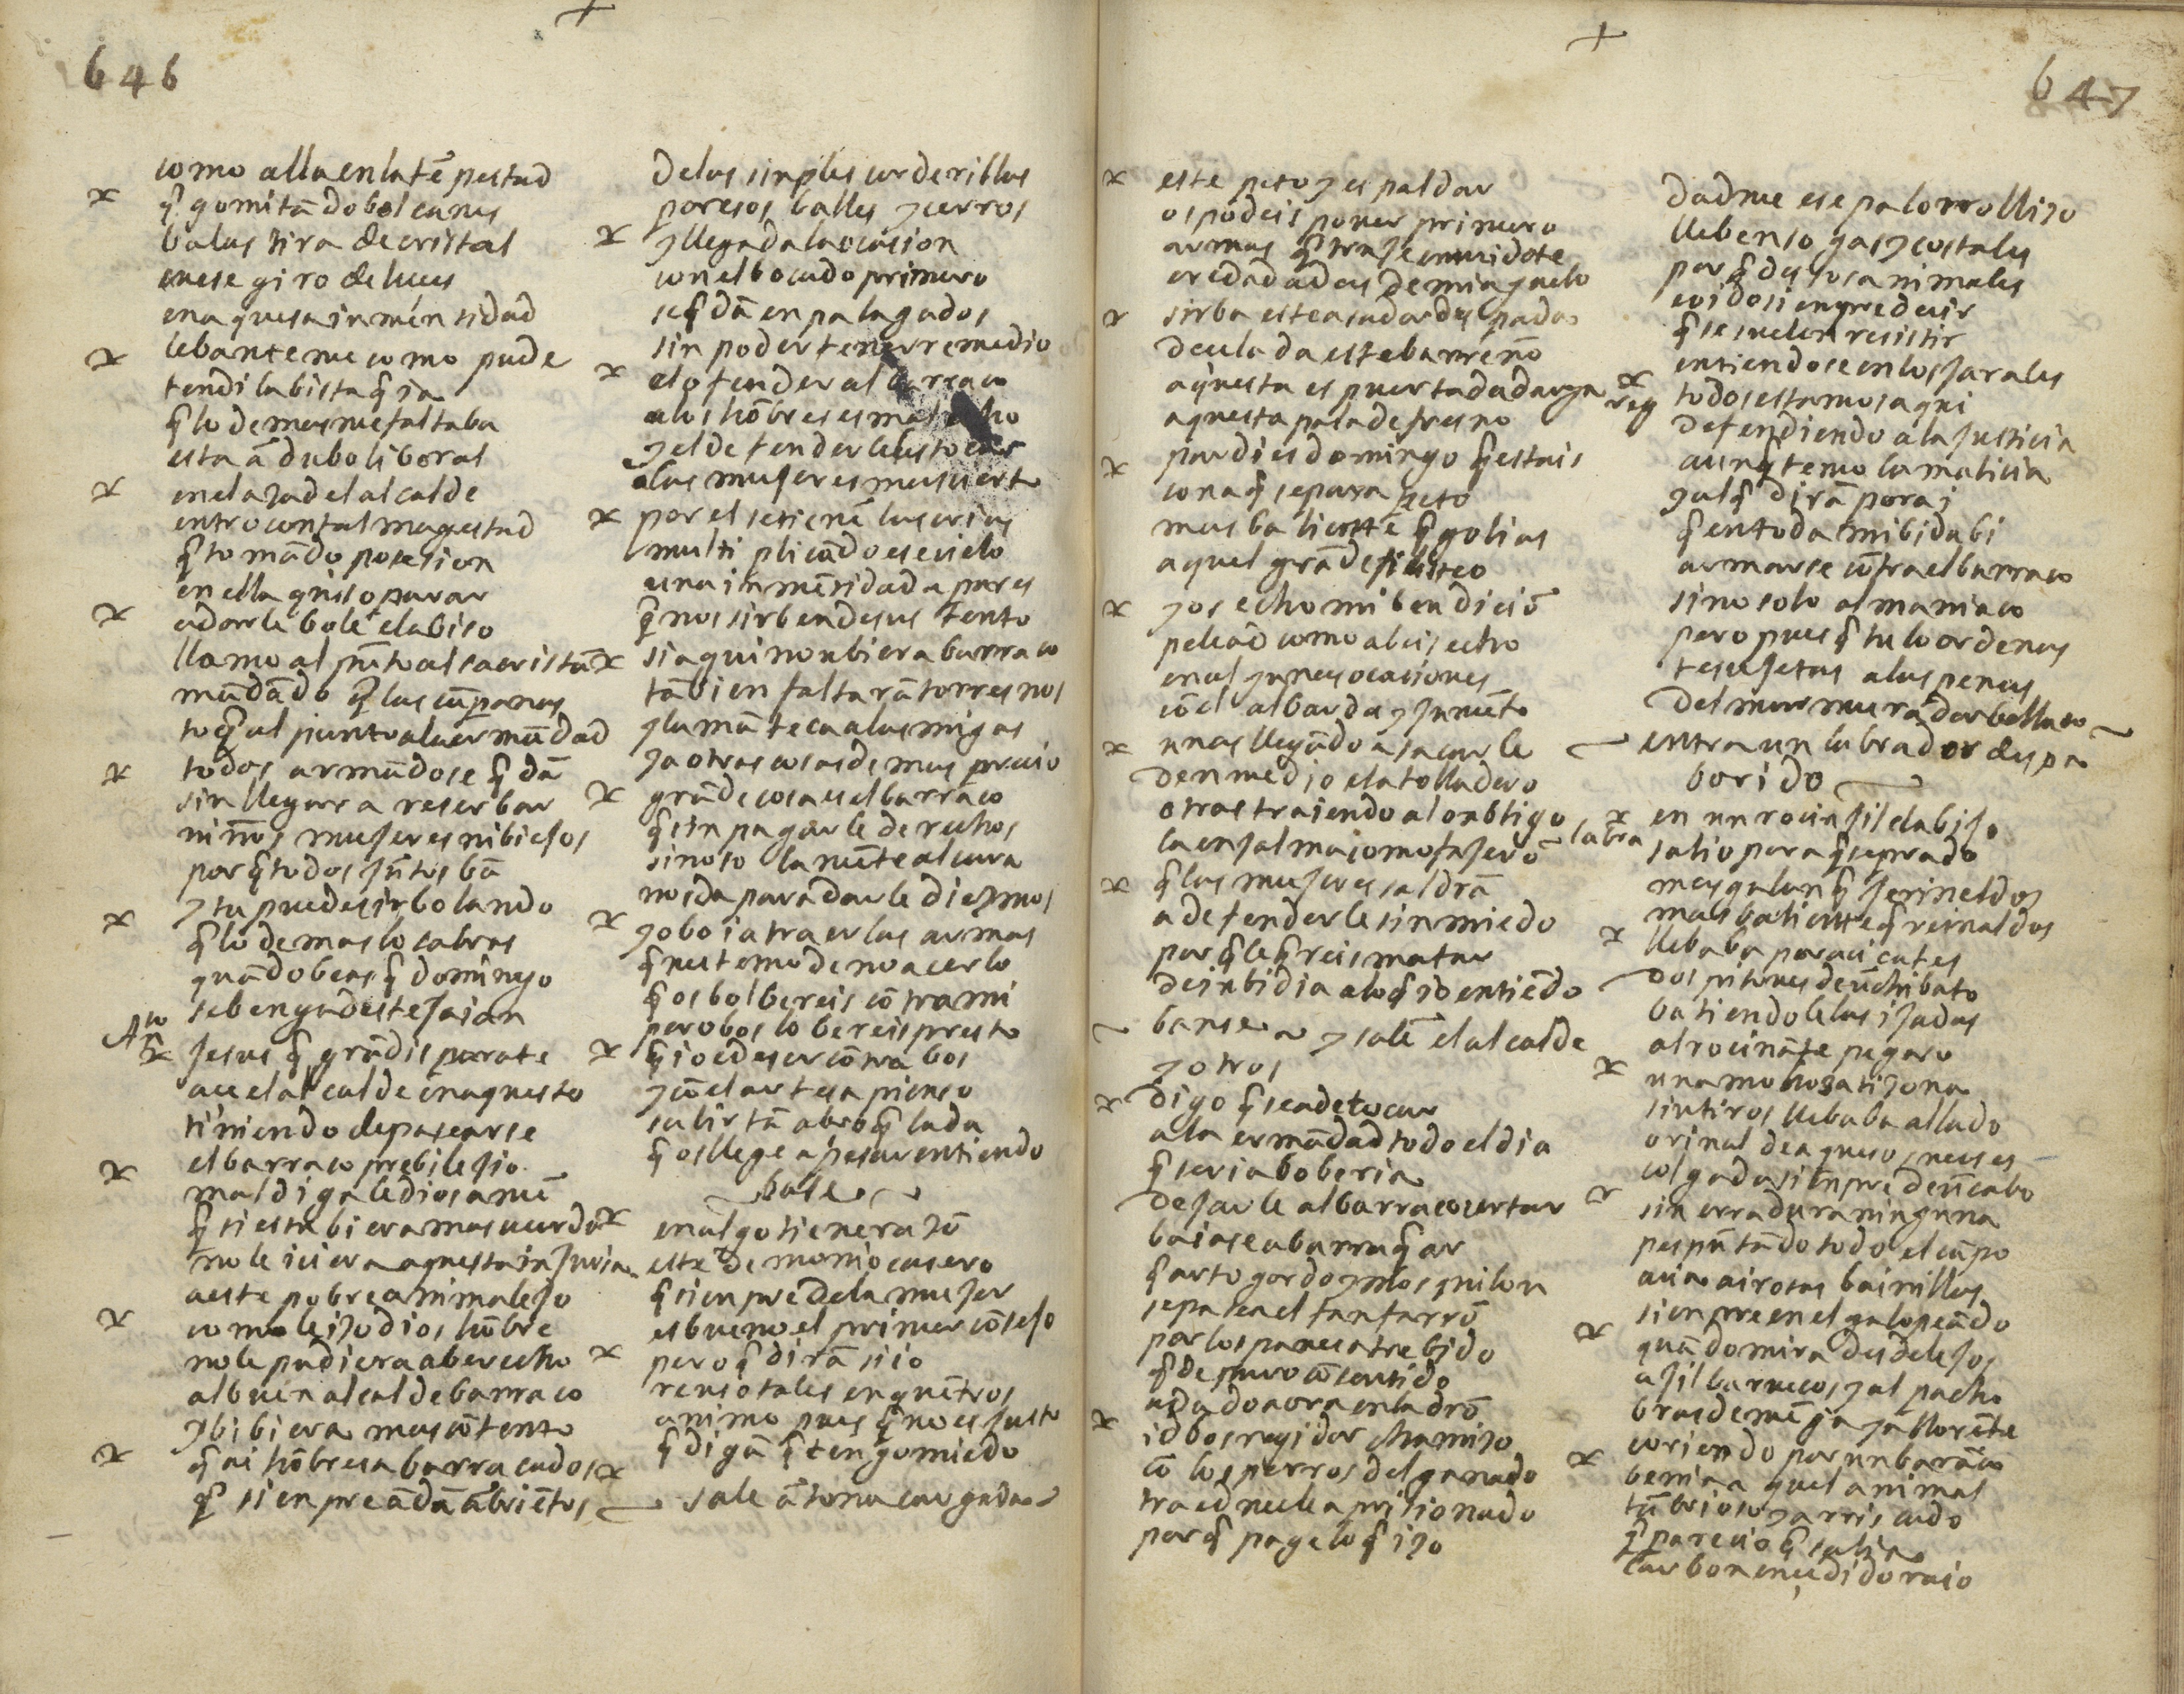 646
como alla en la tẽpestad
q̃ gomitãdo bolcanes
balas tira de cristal
en ese giro de luces
en aquesa inmensidad
lebanteme como pude
tendi la bista q̃ ia
q̃ lo demas me faltaba
esta
en el açad el alcalde
entro con tal magestad
q̃ tomãdo posesion
en ella quiso parar
a darle bole el abiso
llamo al pũto al sacristã
mãdãdo q̃ las cãpanas
toq̃ al punto a la ermãdad
todos armãdose q̃dã
sin llegar a reserbar
niños mujeres ni biejos
porq̃ todos jũtos bã
y tu puedes ir bolando
q̃ lo demas lo sabras
quãdo beas q̃ domingo
se benga deste saian
Jesus q̃ grã disparate
ace el alcalde en aquesto
tiniendo de pasearse
el barraco prebilejio
maldigale dios amẽ
q̃ si estubiera mas cuerdo
no le iciera aquesta injuria
a este pobre animalejo
como le iço dios hõbre
no le pudiera aber echo
al buen alcalde barraco
y bibiera mas cõtento
q̃ ai hõbres a barracados
q̃ sienpre ãdã ãbriẽtos
de los sinples corderillos
por esos balles y cerros
y llegada la ocasion
con el bocado primero
se q̃dã enpalagados
sin poder tener remedio
el ofender al barraco
a los hõbres es mal echo
y el defenderle es to
a las mujeres mas cierto
por el se tienẽ las crias
multiplicãdo ese cielo
una inmẽsidad a pares
q̃ nos sirben de sustento
si aqui no ubiera barraco
tãbien faltarã torresnos
y la mãteca a las migas
y a otras cosas de mas precio
grãde cosa es el barraco
q̃ sin pagarle derechos
sino solamẽte al cura
nos da para darle diezmos
yo boi a traer las armas
q̃ nes temo de no acerlo
q̃ os bolbereis cõtra mi
pero bos lo bereis presto
q̃ io e de ser cõtra bos
y cõ el artesa pienso
salir tã abroq̃lada
q̃ os llege a pesar entiendo
base
en algo tiene raçõ
este demonio casero
q̃ sienpre de la mujer
es bueno el primer cõsejo
pero q̃ dirã si io
renso tales enquẽtros
animo pues q̃ no es justo
q̃ digã q̃ tengo miedo
sale ãtona cargada
647
este peto y espaldar
os podeis poner primero
armas q̃ traje en mi dote
eredadas de mi aguelo
sirba este asador de spada
de celada este barreño
aquesta es puerta de adarga
aquesta pala de fresno
pardies domingo q̃ estais
con aq̃se para peto
mas baliente q̃ golias
aquel grãde filisteo
y os echo mi bendiciõ
pelead como abeis echo
en algunas ocasiones
cõ el albarda y jumẽto
unas llegãdo a sacarle
denmedio el atolladero
otras traiendo al onbligo
la enjalma como
q̃ las mujeres saldrã
a defenderle sin miedo
porq̃ le q̃reis matar
de inbidia a lo q̃ io entiẽdo
banse y salẽ el alcalde
y otros
digo q̃ se a de tocar
a la ermãdad todo el dia
q̃ seria boberia
dejarle al barraco ertar
baiase a barraq̃ar
q̃ arto gordo y mosquilon
se pasea el fanfarrõ
por los panes atrebido
q̃ de puro cõsentido
a dado aora en ladrõ
id bos regidor chamiço
cõ los perros del ganado
traednecle aprisionado
porq̃ page lo q̃ iço
dadme ese palo rolliço
lleben sogas y costales
porq̃ desos animales
e oido sienpre decir
q̃ se suelen resistir
entiendose en los jarales
reg
todos estamos aqui
defendiendo a la justicia
aunq̃ temo la malicia
y al q̃ dirã por ai
q̃ en toda mi bida bi
armarse cõtra el barraco
sino solo al maniaco
pero pues q̃ tu lo ordenas
te sujetas a las penas
del murmurador bellaco
entra un labrador despa
borido
labra
en un rocin jil el abiso
salio para q̃ se prado
mas galan q̃ jerineldos
mas baliente q̃ reinaldos
llebaba por acicates
dos pitones de ũ chibato
batiendole las ijadas
al rocinãte pegaso
una mohosa tiçona
sin tiros llebaba al lado
orinal de a queso
colgada sienpre de ũ cabo
sin erradura ninguna
pespũtãdo todo el cãpo
acia airosas bainillas
sienpre en el galopeãdo
quãdo mira desde lejos
a jil barruecos y al pacho
bras de mẽga y a llorẽte
coriendo por un barãco
benia aquel animal
tã brioso y arriscado
q̃ parecio q̃ salia
carbon encẽdido raio